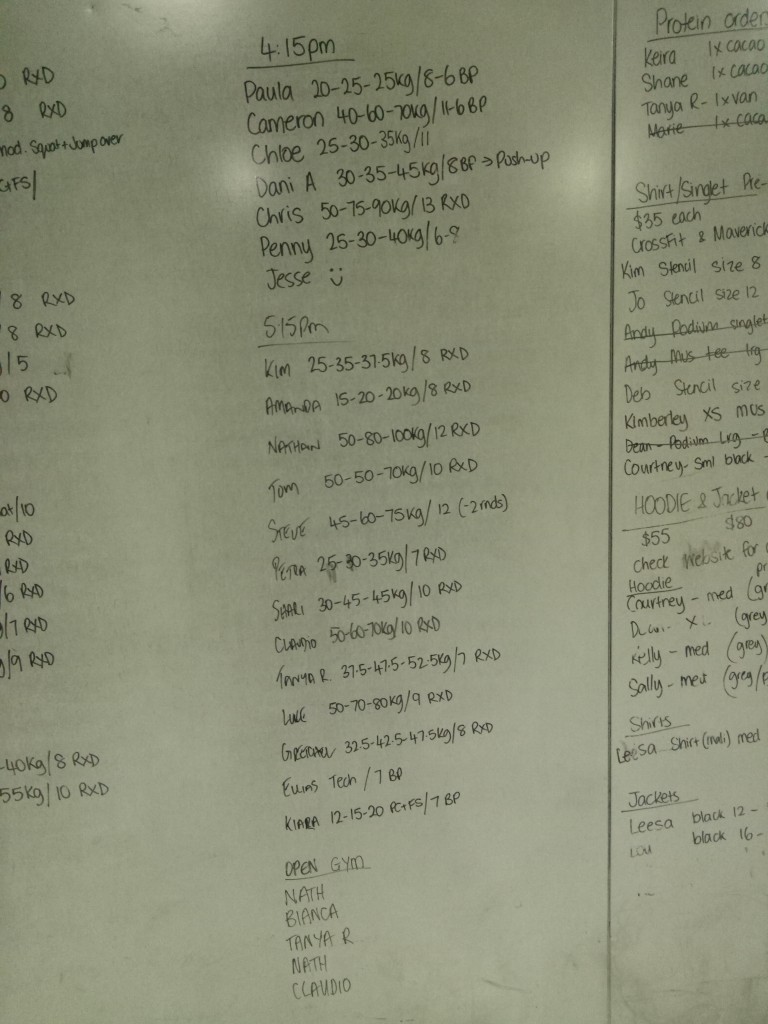 RXD
8 RXD
mod. Squat + Jump over
+FS/
/ 8 RXD
/ 8 RXD
/ 5
0 RXD
at/10
RXD
RXD
/6 RXD
/7 RXD
/9 RXD
-40kg/8 RXD
55kg/10 RXD
4:15pm
Paula 20-25-25kg/8-6BP
Cameron 40-60-70kg/11-6BP
Chloe 25-30-35kg/11
Dani A 30-35-45kg/8BP → Push-up
Chris 50-75-90kg/13 RXD
Penny 25-30-40kg/6-
Jesse
5:15pm
Kim 25-35-37.5kg/8 RXD
AMANDA 15-20-20kg/8 RXD
NATHAN 50-80-100kg/12 RXD
Tom 50-50-70kg/10 RXD
STEVE 45-60-75kg/12 (-2rnds)
PETRA 25-30-35kg/7 RXD
SHARI 30-45-45kg/10 RXD
CLAUDIO 50-60-70kg/10 RXD
TANYA R. 37.5-47.5-52.5kg/7 RXD
LUKE 50-70-80kg/9 RXD
GRETCHEN 32.5-42.5-47.5kg/8 RXD
Tech / 7 BP
KIARA 12-15-20 PC+FS/7 BP
OPEN GYM
NATH
BIANCA
TANYA R
NATH
CLAUDIO
Protein order
Keira 1x cacao
Shane 1x cacao
Tanya R - 1x van
Marie 1x caca
Shirt/Singlet Pre-
$35 each
CrossFit & Maverick
Kim Stencil size 8
Jo Stencil size 12
Andy Podium singlet
Andy Mus tee lrg
Deb Stencil size
Kimberley XS mus
Dean - Podium Lrg -
Courtney - Sml black -
HOODIE & Jacket
$55 $80
check website for
Hoodie
Courtney - med (gr
(grey
Kelly - med (grey)
Sally - med (grey/p
Shirts
Leesa Shirt (muli) med
Jackets
Leesa black 12 -
Lou black 16 -